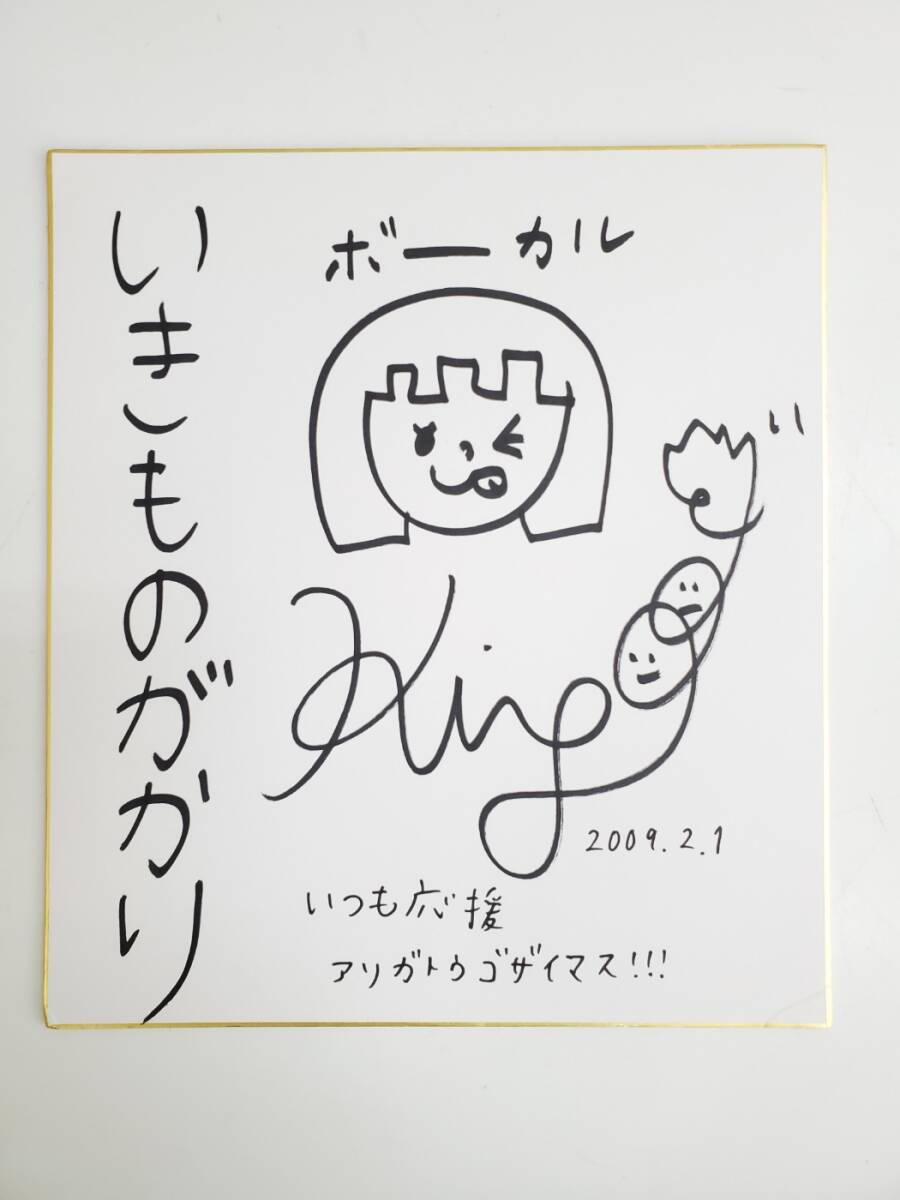 いきものがかり
ボーカル
2009.2.1
いつも応援
アリガトウゴザイマス!!!